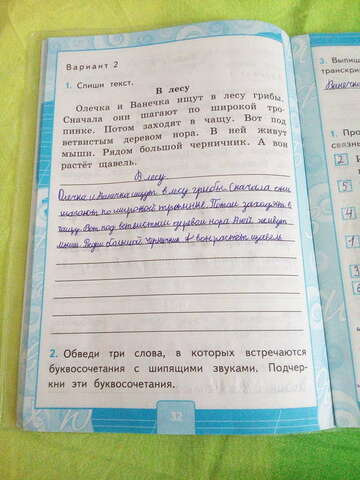 Вариант 2
1. Спиши текст.
В лесу
Олечка и Ванечка ищут в лесу грибы.
Сначала они шагают по широкой тро-
пинке. Потом заходят в чащу. Вот под
ветвистым деревом нора. В ней живут
мыши. Рядом большой черничник. А вон
растёт щавель.
В лесу
Олечка и Ванечка ищут в лесу грибы. Сначала они
шагают по широкой тропинке. Потом заходят в
чащу. Вот под ветвистым деревом нора. В ней живут
мыши. Рядом большой черничник. А вон растёт щавель.
2. Обведи три слова, в которых встречаются
буквосочетания с шипящими звуками. Подчер-
кни эти буквосочетания.
32
3. Выпиш
транскри
Ванечк
1. Про
связны
2 И
5
4
1
3
6